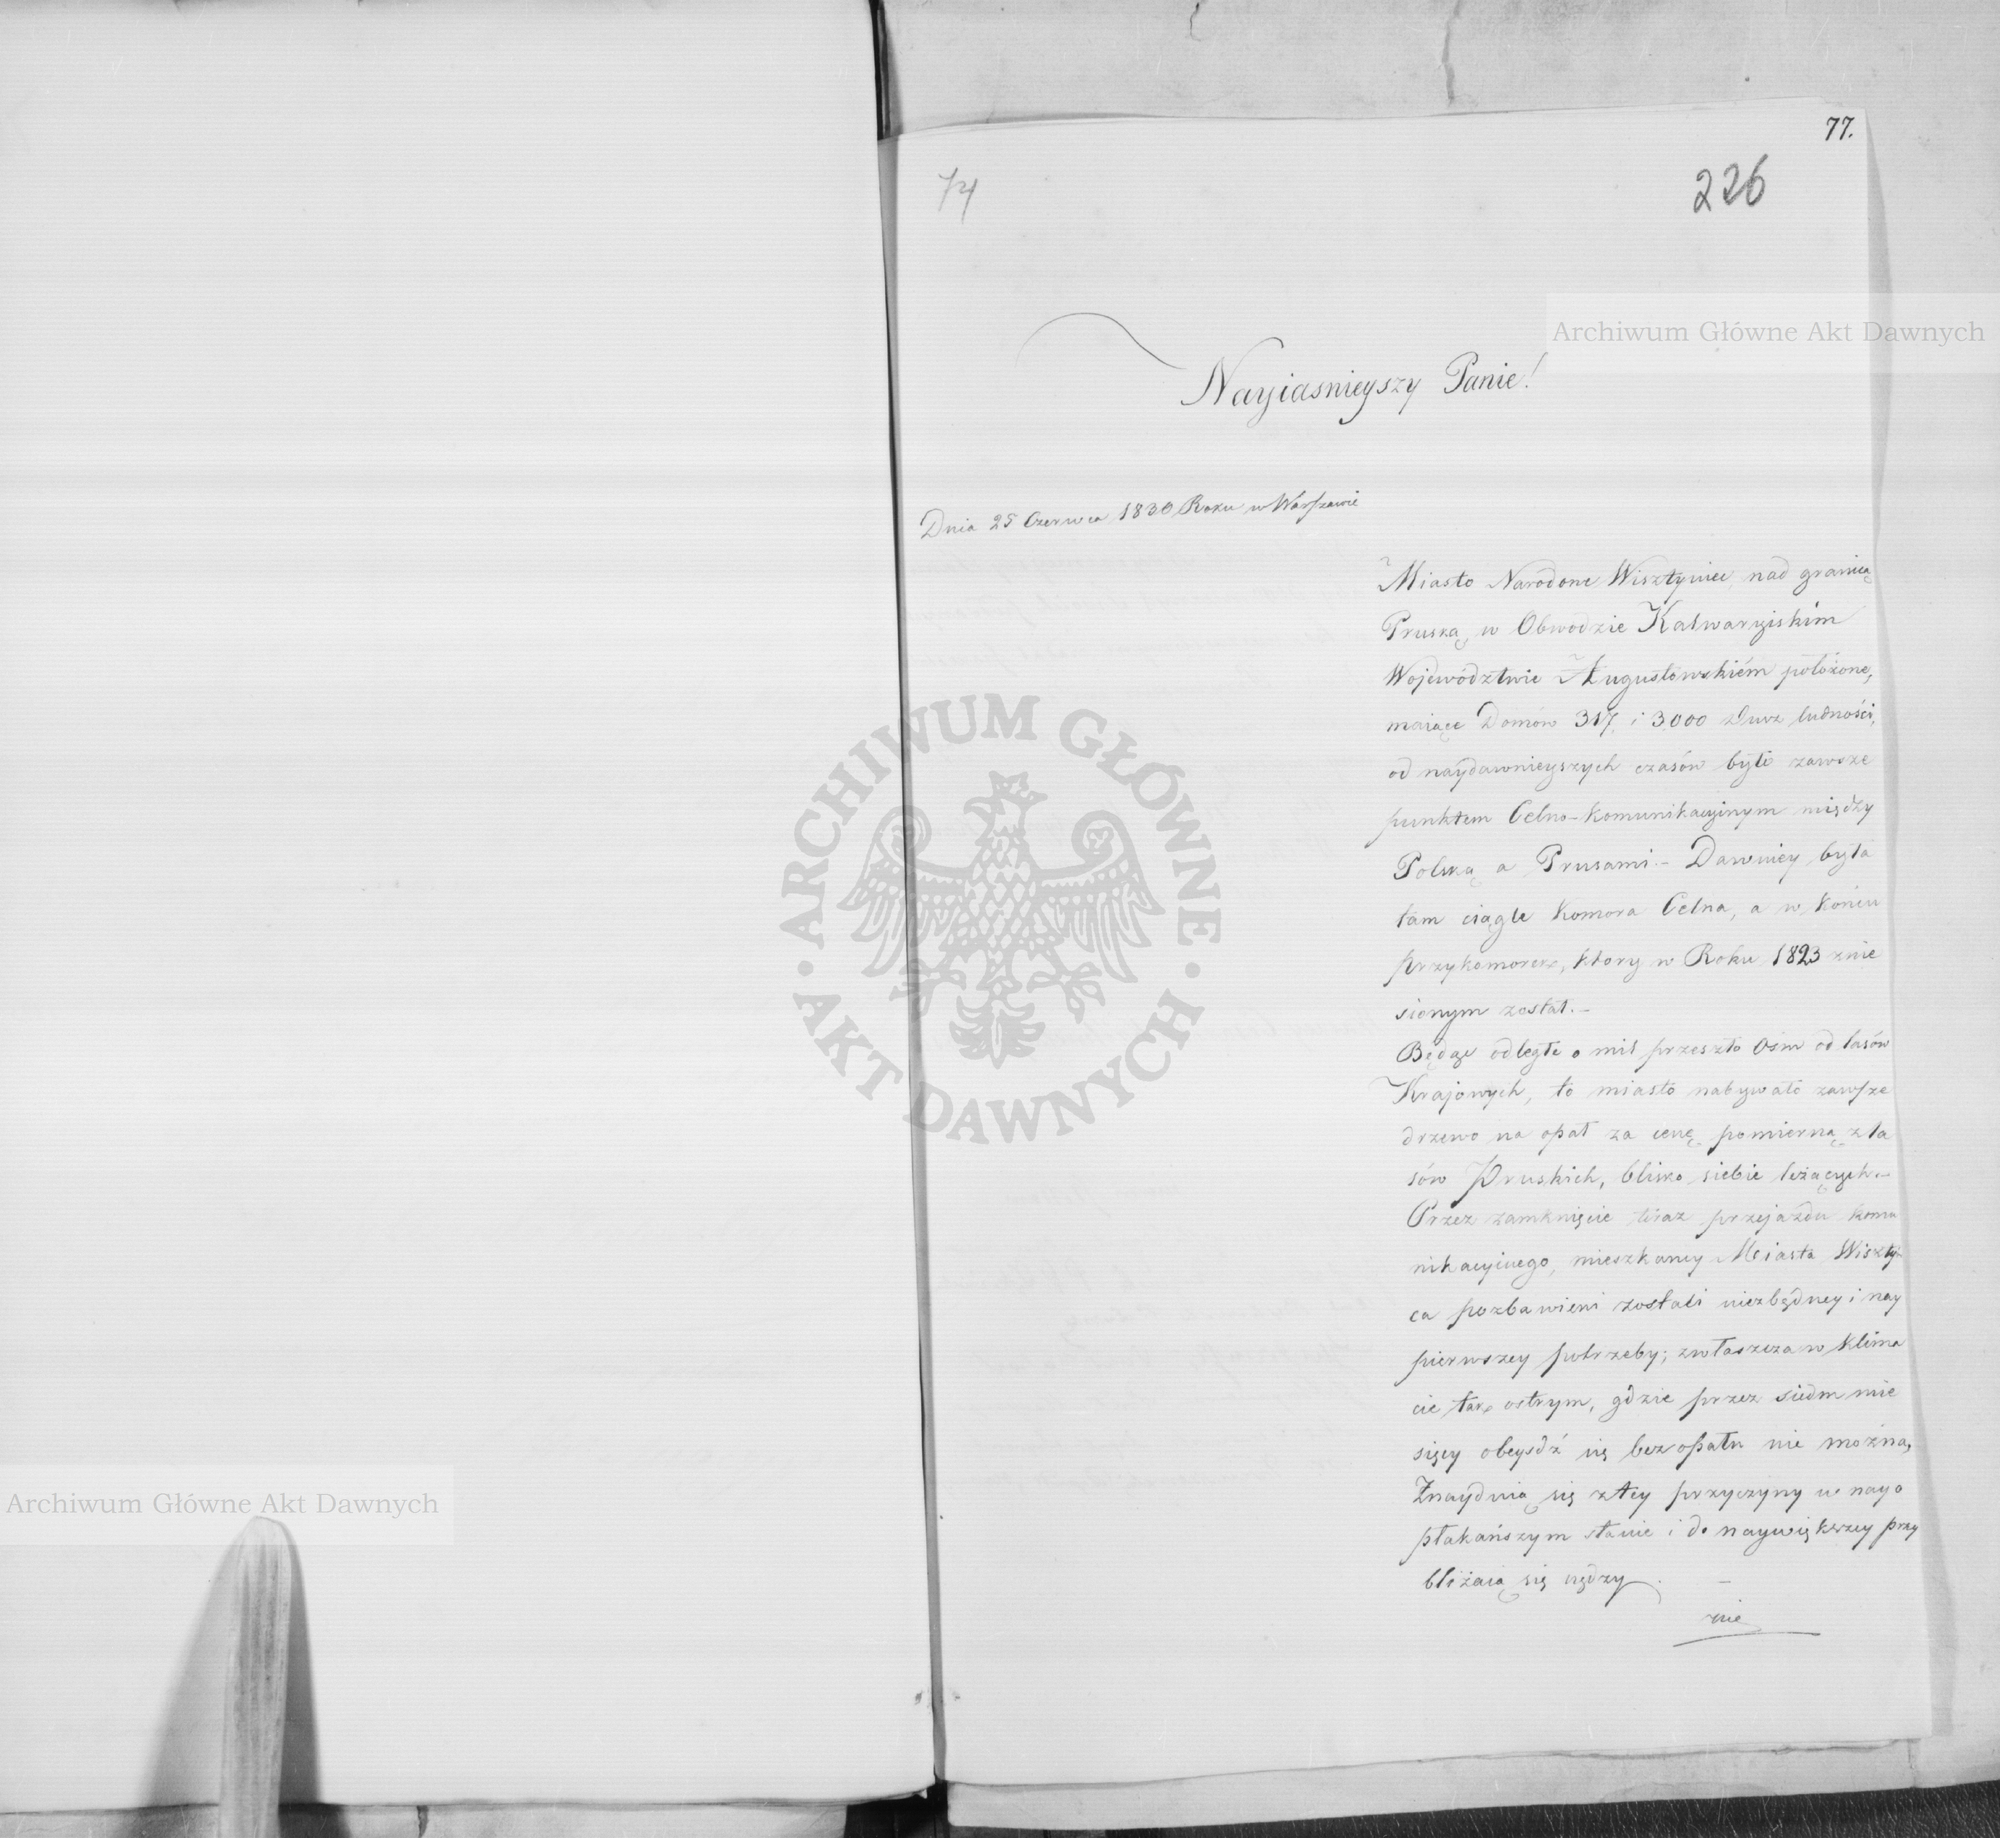 77.
74
226
Archiwum Główne Akt Dawnych
Nayiasnieyszy Panie!
Dnia 25 Czerwca 1830 Roku w Warszawie
Miasto Narodowe Wisztyniec, nad granicą
Pruską, w Obwodzie Kalwaryiskim
Województwie Augustowskiém położone,
maiące Domów 317, i 3000 Dusz ludności,
od naydawnieyszych czasów było zawsze
punktem Celno-komunikacyinym między
Polską a Prusami.- Dawniey była
tam ciągle Komora Celna, a w końcu
przykomorek, ktory w Roku 1823 znie
sionym został.-
Będąc odległe o mil przeszło Ośm od lasów
Krajowych, to miasto nabywało zawsze
drzewo na opał za cenę pomierną z la
sów Pruskich, blisko siebie leżących.-
Przez zamknięcie teraz przejazdu komu
nikacyinego, mieszkancy Miasta Wiszty
ca pozbawieni zostali niezbędney i nay
pierwszey potrzeby; zwłaszcza w klima
cie tak ostrym, gdzie przez siedm mie
sięcy obeysdź się bez opału nie można,
Znayduią się z tey przyczyny w nayo
płakańszym stanie i do naywiększey przy
bliżaią się nędzy. -
nie
ARCHIWUM GŁÓWNE · AKT DAWNYCH ·
Archiwum Główne Akt Dawnych